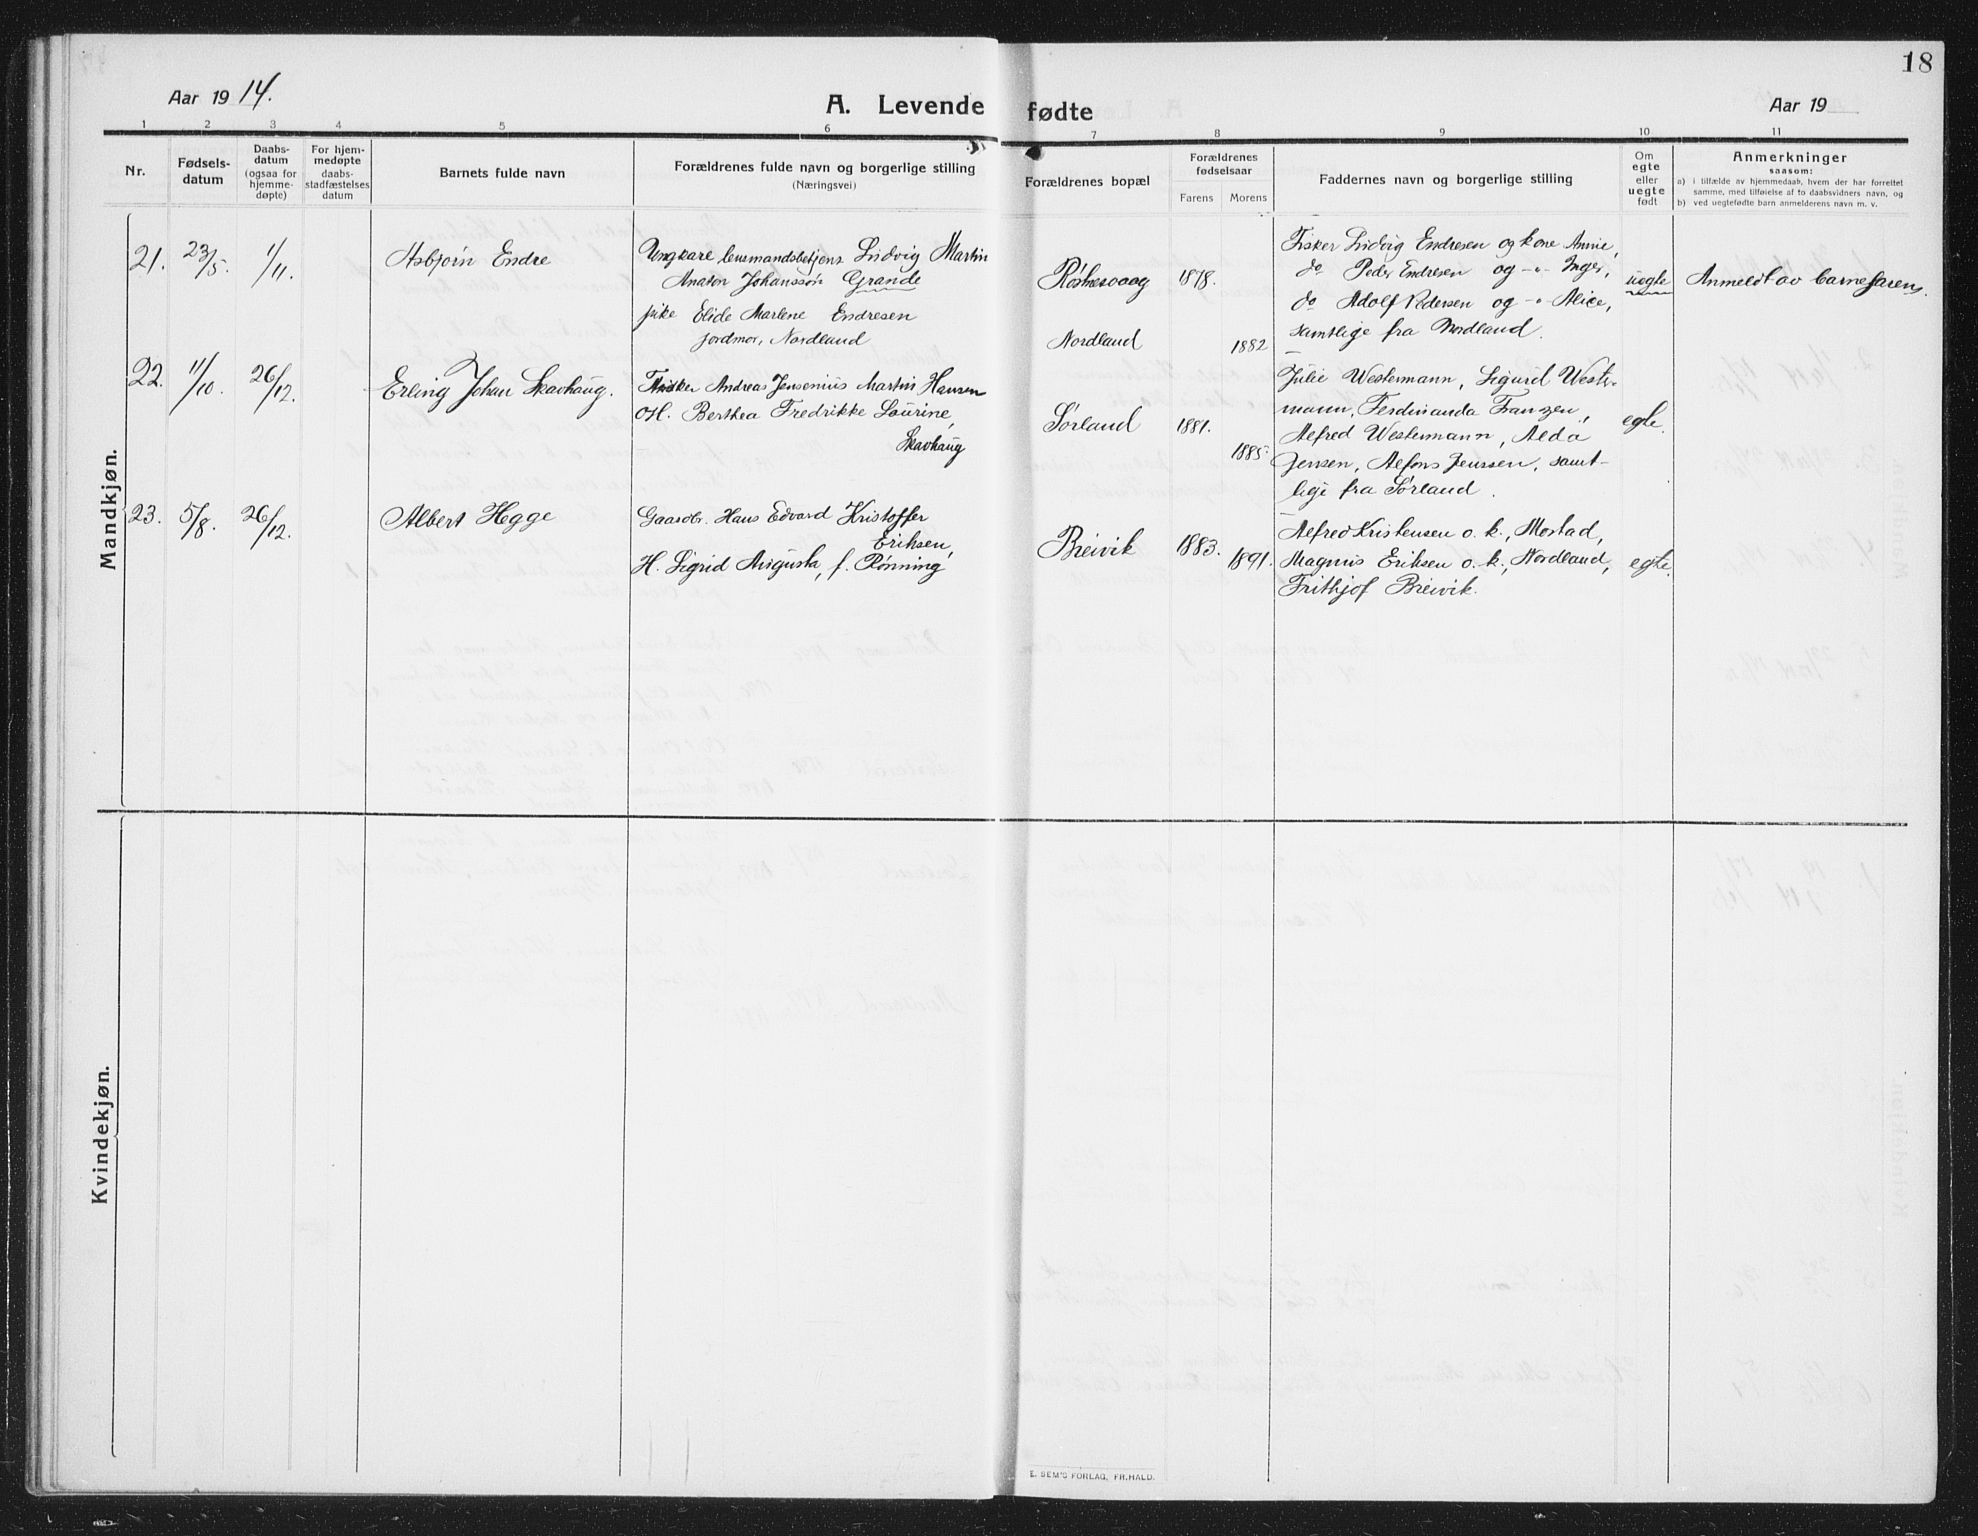 18
Aar 1914.
A. Levende fødte
Aar 19
1 2 3 4 5 6 7 8 9 10 11
Nr.
Fødsels-
datum
Daabs-
datum
(ogsaa for
hjemme-
døpte)
For hjem-
medøpte
daabs-
stadfæstelses
datum
Barnets fulde navn
Forældrenes fulde navn og borgerlige stilling
(Næringsvei)
Forældrenes bopæl
Forældrenes
fødselsaar
Farens Morens
Faddernes navn og borgerlige stilling
Om
egte
eller
uegte
født
Anmerkninger
saasom:
a) i tilfælde av hjemmedaab, hvem der har forrettet
samme, med tilføielse af to daabsvidners navn, og
b) ved uegtefødte barn anmelderens navn m. v.
Mandkjøn.
21. 23/5. 1/11. Asbjørn Endre
Ungkare lensmandsbetjent Ludvig Martin
Anaton Johanssøn Grande
pike Elide Marlene Endresen
jordmor, Nordland
Røstnesvaag 1878.
Nordland 1882
Fisker Ludvig Endresen og kone Annie,
do Peder Endresen og -"- Inger,
do Adolf Pedersen og -"- Alice,
samtlige fra Nordland.
uegte
Anmeldt av barnefaren.
22. 11/10. 26/12. Erling Johan Skavhaug.
Fisker Andreas Jensenius Martin Hansen
og H. Berthea Fredrikke Laurine,
Skavhaug
Sørland 1881.
1885
Julie Westermann, Sigurd Wester-
mann, Ferdinanda Franzen,
Alfred Westermann, Alda
Jensen, Alfons Jenssen, samt-
lige fra Sørland.
egte.
23. 5/8. 26/12. Albert Hegge
Gaardbr. Hans Edvard Kristoffer
Eriksen,
H. Sigrid Augusta, f. Rønning
Breivik 1883. 1891.
Alfred Kristensen o. k., Mostad,
Magnus Eriksen o. k., Nordland,
Frithjof Breivik.
egte.
Kvindekjøn.
E. SEM'S FORLAG, FR.HALD.